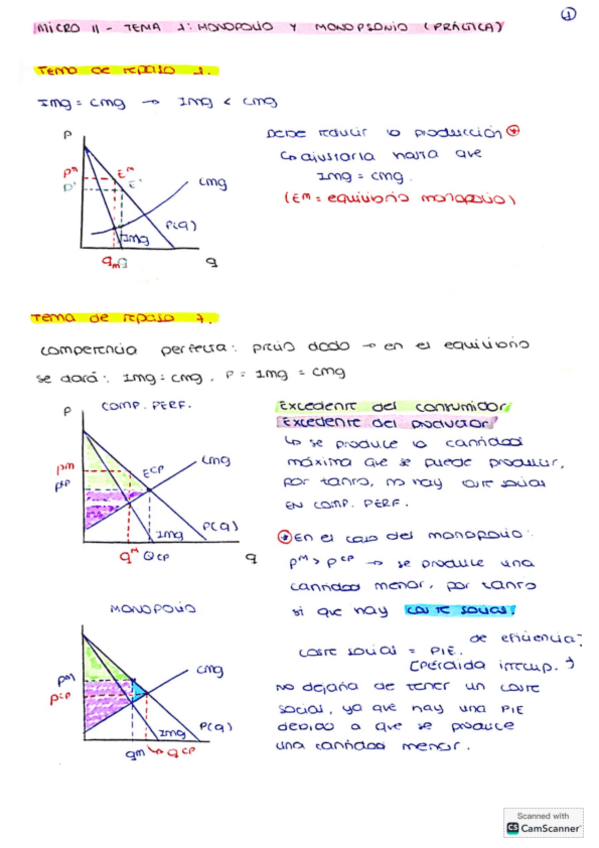 1
MICRO II - TEMA 1: MONOPOLIO Y MONOPSONIO (PRÁCTICA)
Tema de repaso 1.
Img = Cmg → Img < Cmg
Debe reducir la producción *
↳ ajustarla hasta que
Img = Cmg.
(EM = equilibrio monopolio)
P
pM
P'
EM
E'
Cmg
P(q)
Img
qm
q
q
Tema de repaso 7.
Competencia perfecta: precio dado → en el equilibrio
se dará: Img = Cmg, P = Img = Cmg
P
COMP. PERF.
pM
pCP
ECP
Cmg
P(q)
Img
qM QCP
q
Excedente del consumidor
Excedente del productor
↳ se produce la cantidad
máxima que se puede producir,
por tanto, no hay coste social
EN COMP. PERF.
* En el caso del monopolio:
pM > pCP → se produce una
cantidad menor, por tanto
si que hay coste social.
de eficiencia
coste social = PIE.
(Pérdida irrecup. ↑
No dejaría de tener un coste
social, ya que hay una PIE
debido a que se produce
una cantidad menor.
MONOPOLIO
pM
pCP
Cmg
P(q)
Img
qM ↳ qCP
Scanned with
CS CamScanner